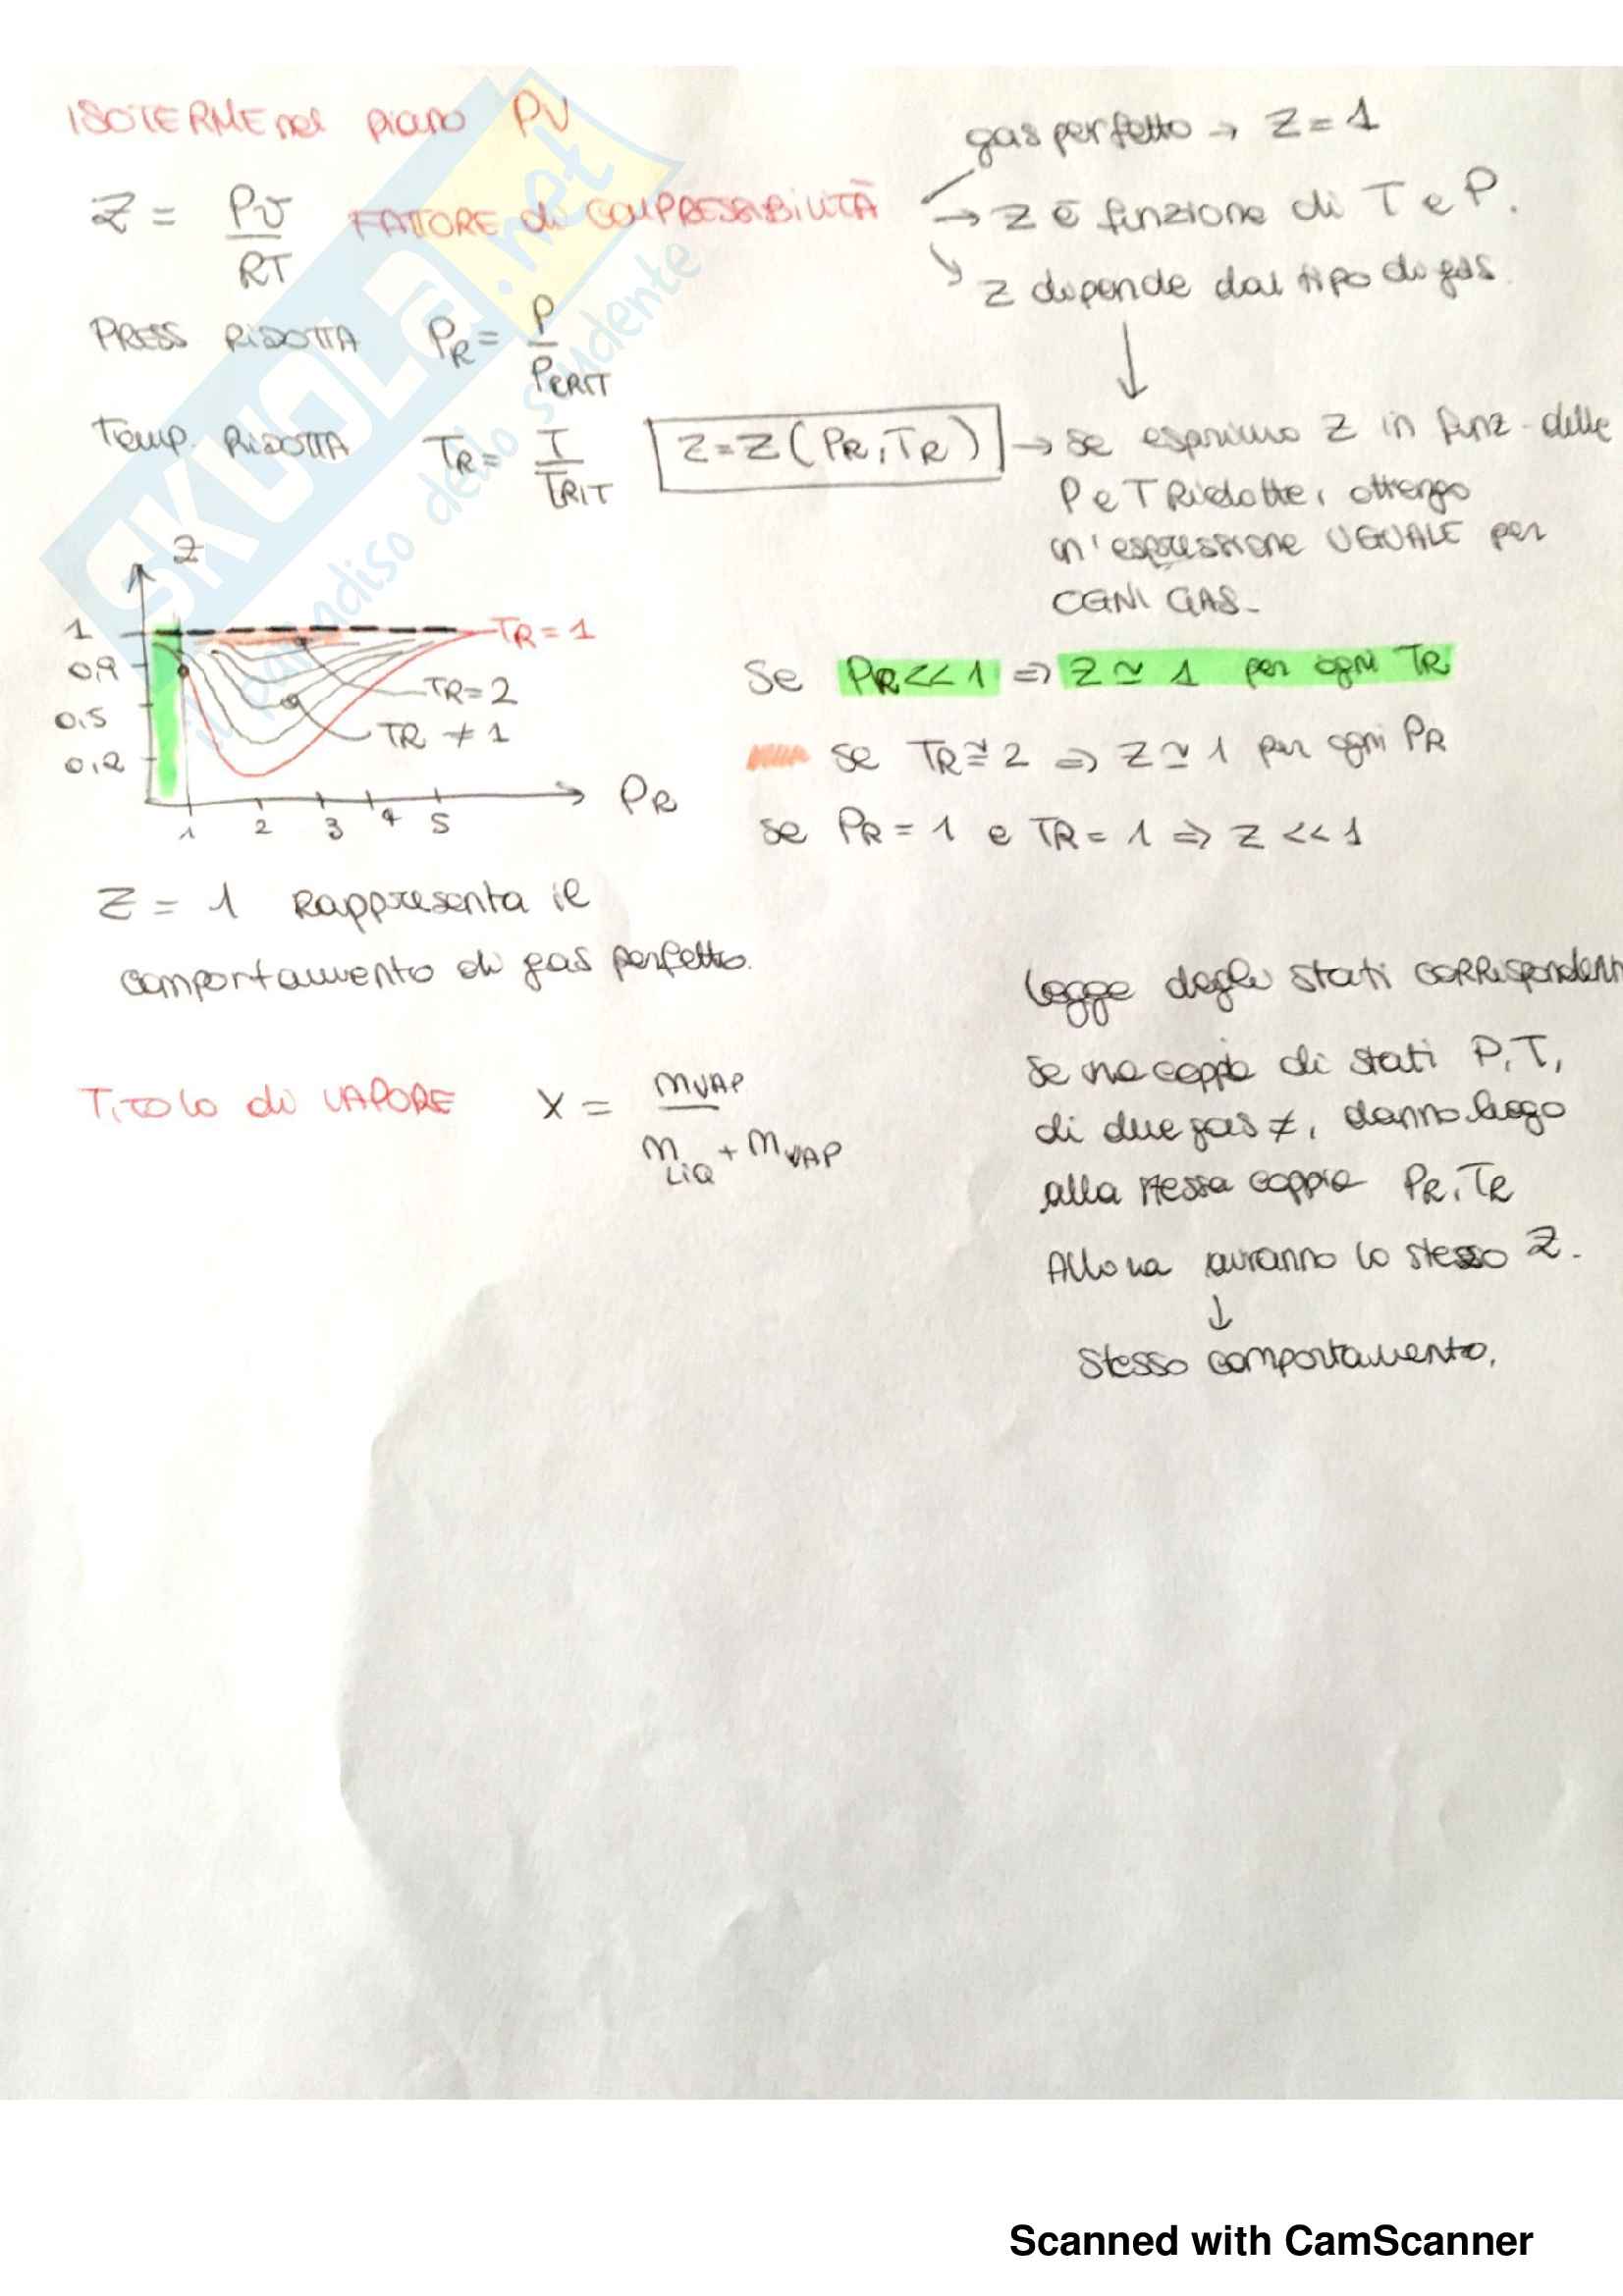 ISOTERME nel piano PV
Z = Pv / RT FATTORE di COMPRESSIBILITÀ
gas perfetto → Z = 1
→ Z è funzione di T e P.
↘ Z dipende dal tipo di gas.
PRESS RIDOTTA PR = P / PCRIT
Temp. RIDOTTA TR = T / TCRIT
Z = Z (PR, TR) → se esprimo Z in funz. delle
P e T Ridotte, ottengo
un'espressione UGUALE per
OGNI GAS.
Z
1
0,9
0,5
0,2
TR = 1
TR = 2
TR ≠ 1
1 2 3 4 5
PR
Se PR << 1 ⇒ Z ≃ 1 per ogni TR
se TR ≅ 2 ⇒ Z ≃ 1 per ogni PR
se PR = 1 e TR = 1 ⇒ Z << 1
Z = 1 Rappresenta il
comportamento di gas perfetto.
Legge degli stati corrispondenti
se una coppia di stati P, T,
di due gas ≠, danno luogo
alla stessa coppia PR, TR
Allora avranno lo stesso Z.
↓
Stesso comportamento.
Titolo di VAPORE X = mVAP / mLIQ + mVAP
SKUOLA.net
il paradiso dello studente
Scanned with CamScanner